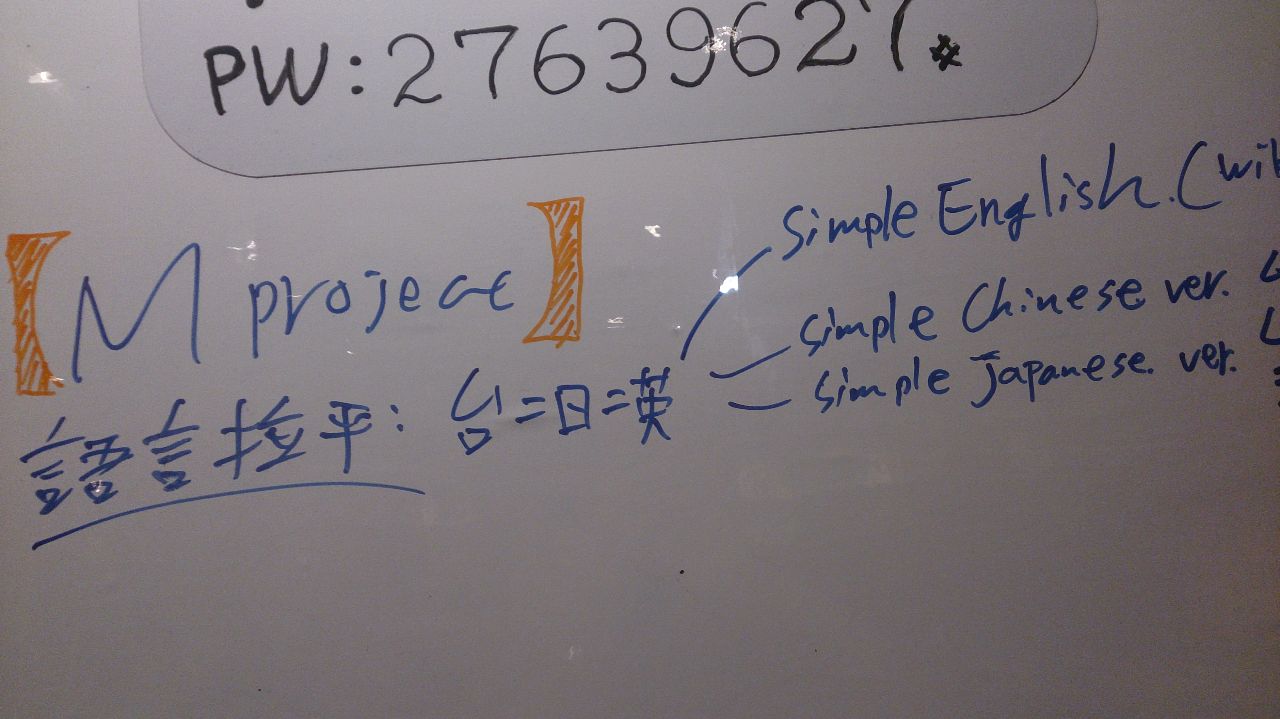 PW:27639627.#
【M project】
simple English.(wi
simple Chinese ver.
simple Japanese. ver.
語言拉平: 台=日=英